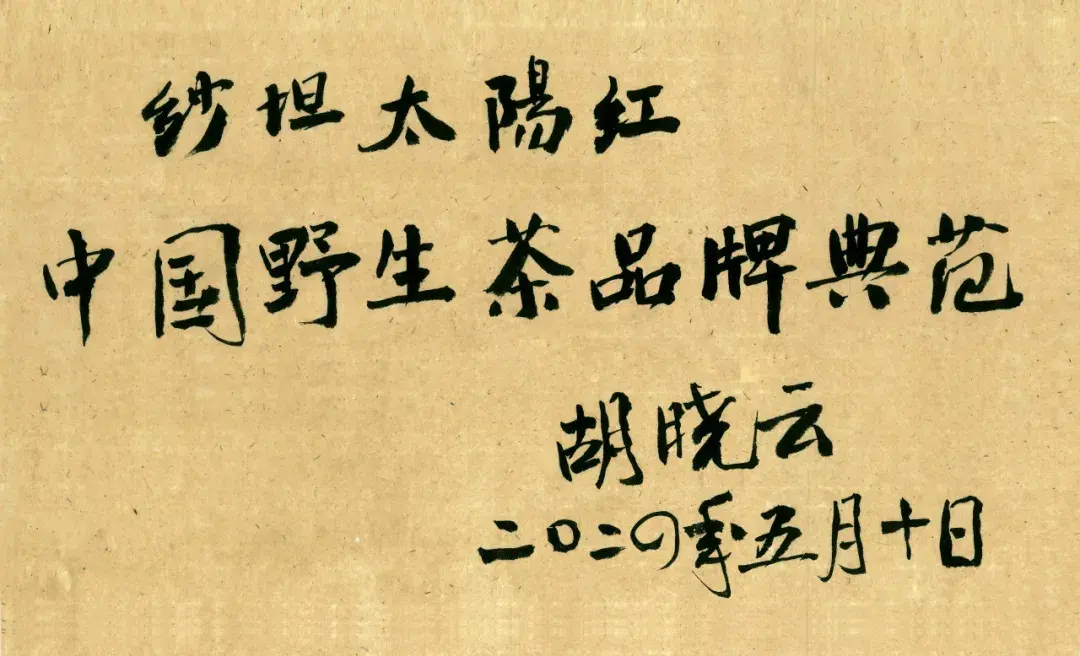 纱坦太陽红
中国野生茶品牌典范
胡晓云
二〇二〇年五月十日